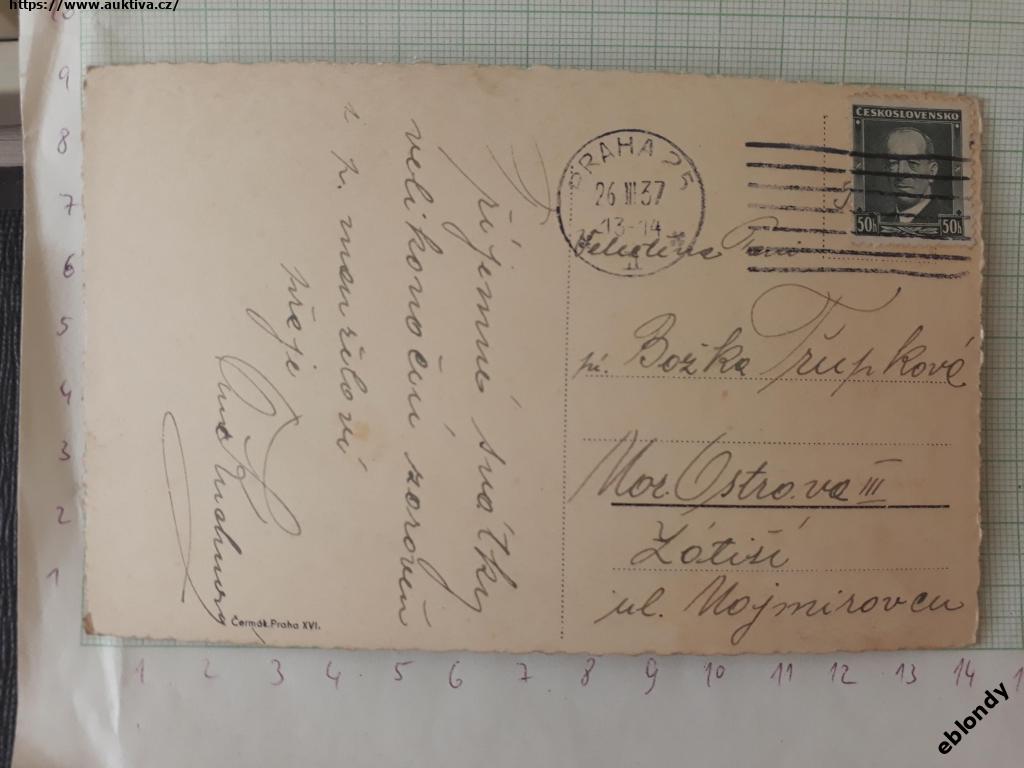 https://www.auktiva.cz/
ČESKOSLOVENSKO
50h 50h
PRAHA 25
26 III 37
13-14
příjemné svátky
velikonoční zároveň
i p. manželovi
přeje
Čermák, Praha XVI.
Velectěná Paní
pí. Božka Třúpková
Mor. Ostrava III
Zátiší
ul. Mojmírovců
10
9
8
7
6
5
4
3
2
1
1 2 3 4 5 6 7 8 9 10 11 12 13 14
eblondy